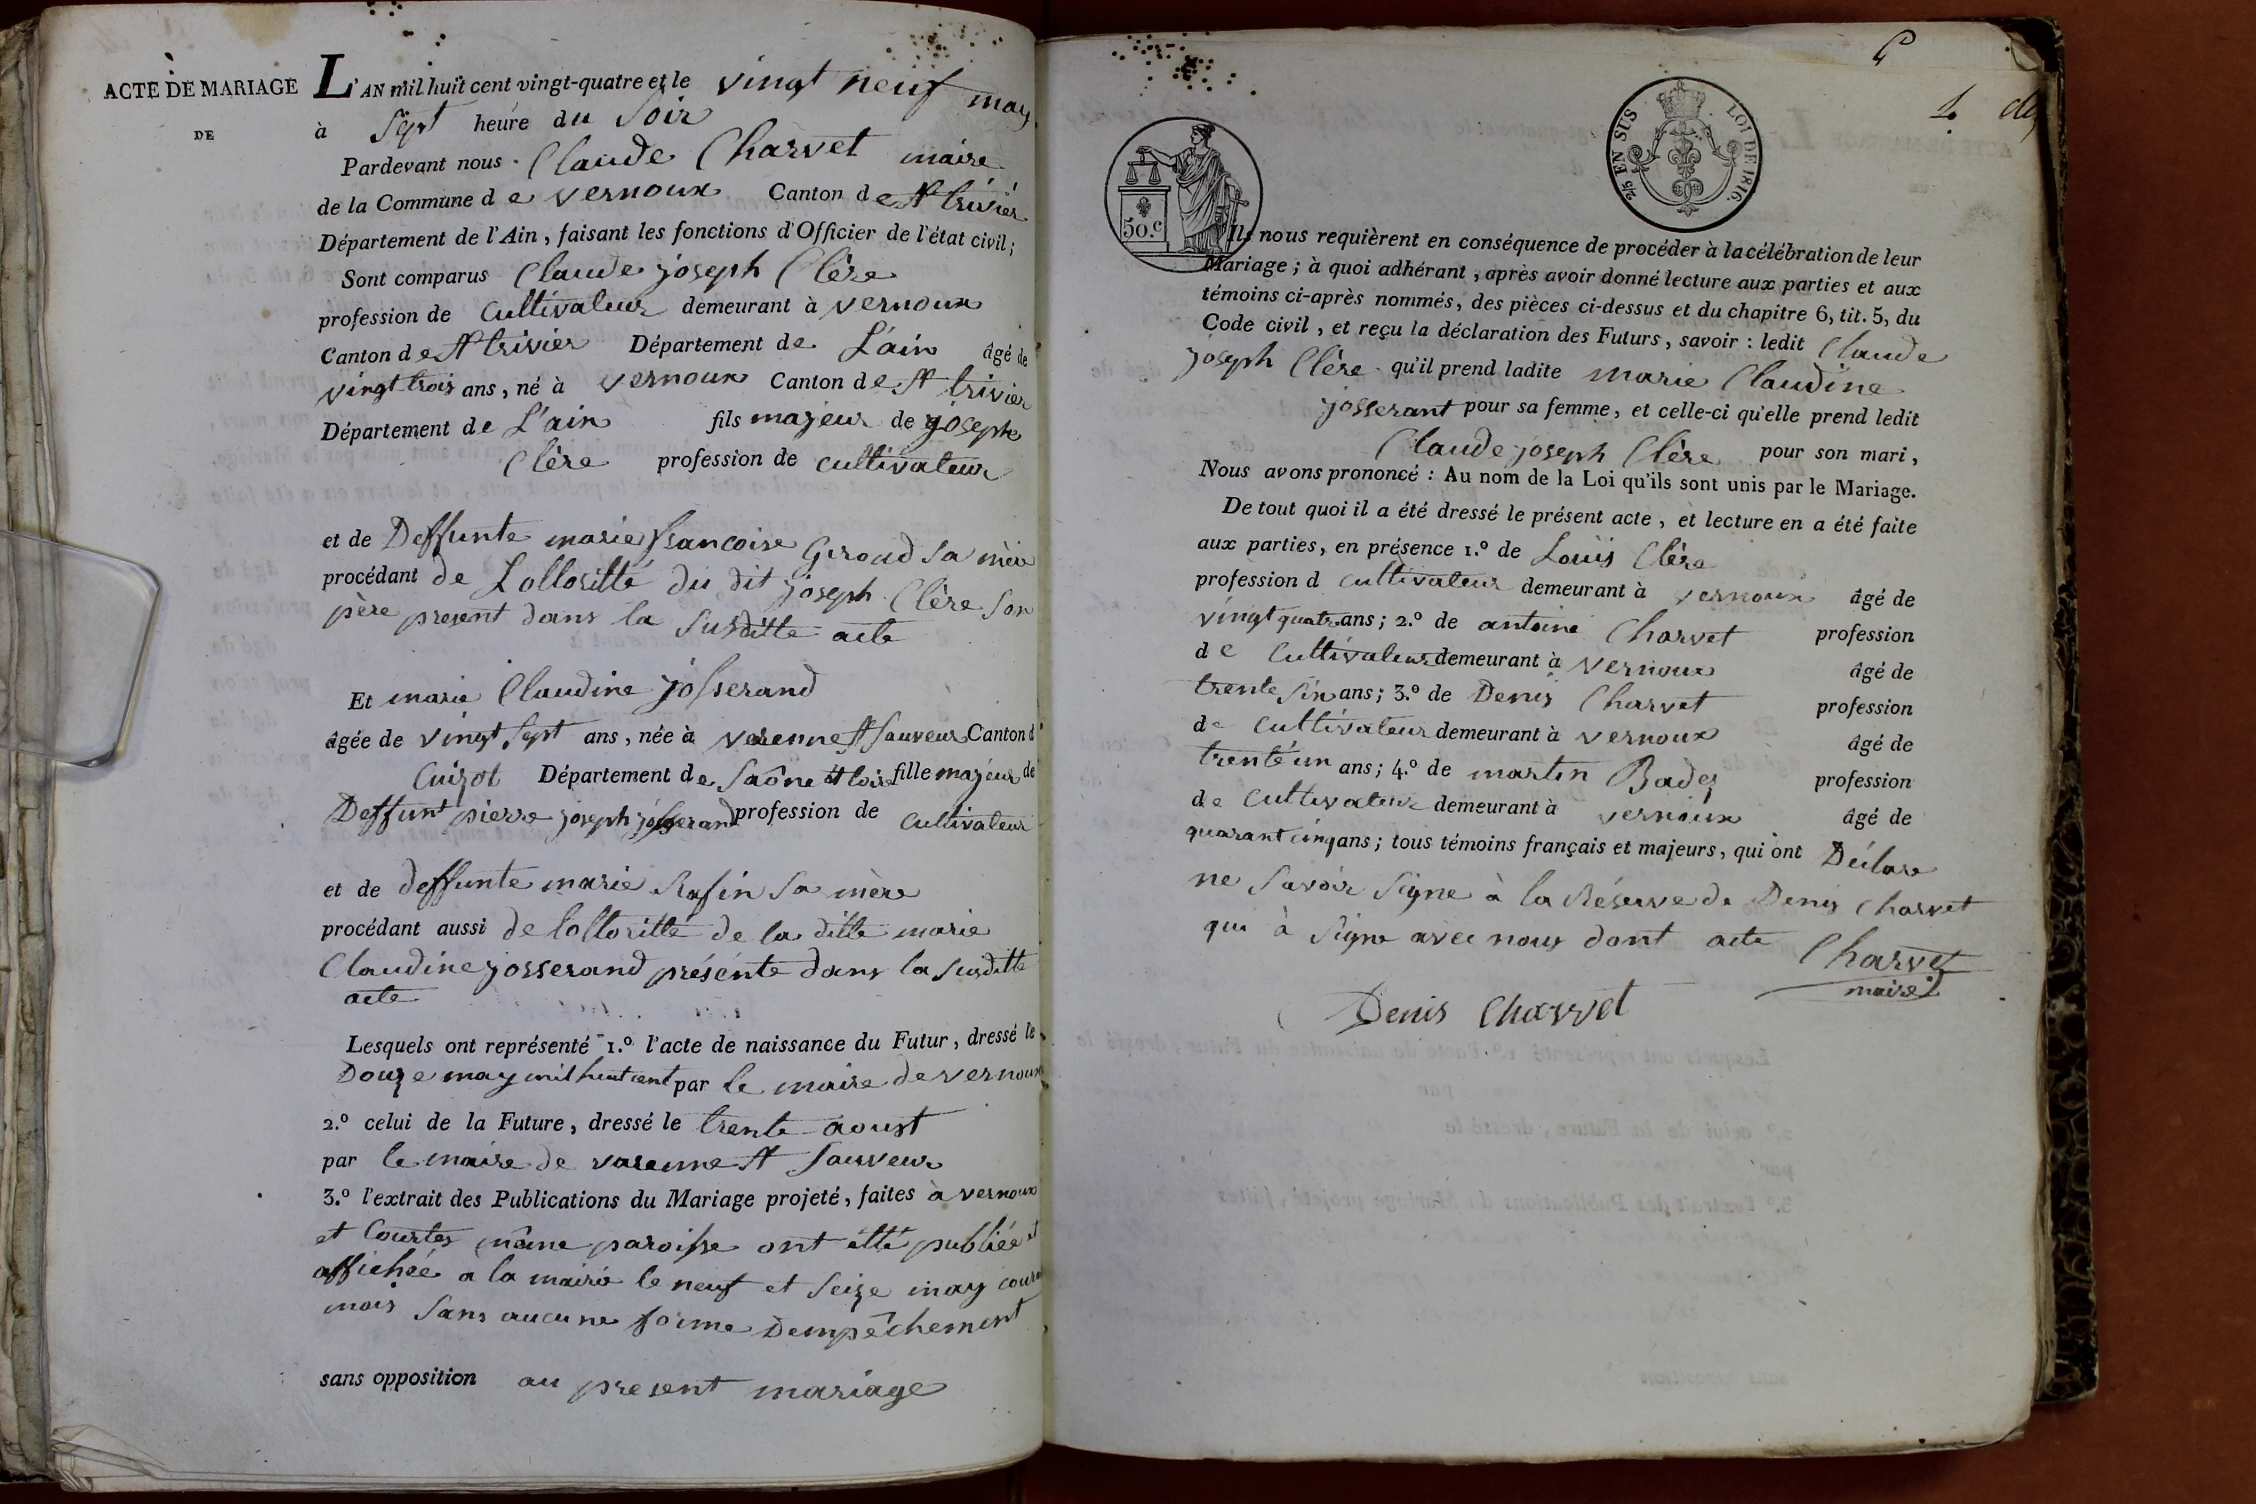 ACTE DE MARIAGE
DE
L'AN mil huit cent vingt-quatre et le vingt neuf may
à Sept heure du Soir
Pardevant nous Claude Charvet maire
de la Commune de vernoux Canton de St trivier
Département de l'Ain, faisant les fonctions d'Officier de l'état civil;
Sont comparus Claude joseph Clère
profession de Cultivateur demeurant à vernoux
Canton de St trivier Département de L'ain âgé de
vingt trois ans, né à vernoux Canton de St trivier
Département de L'ain fils majeur de joseph
Clère profession de cultivateur
et de Deffunte marie francoise Geroud Sa mère
procédant de Lottoritté du dit joseph Clère Son
père present dans la Susditte acte
Et marie Claudine josserand
âgée de vingt Sept ans, née à varenne St Sauveur Canton d
Cuizot Département de Saône et loire fille majeur de
Deffunt pierre joseph josserand profession de cultivateur
et de deffunte marie Rafin Sa mère
procédant aussi de lottoritté de la ditte marie
Claudine josserand présénte dans la Susditte
acte
Lesquels ont représenté 1.º l'acte de naissance du Futur, dressé le
Douze may mil huit cent par le maire de vernoux
2.º celui de la Future, dressé le trente aoust
par le maire de varenne St Sauveur
3.º l'extrait des Publications du Mariage projeté, faites à vernoux
et Courtes même paroisse ont étté publiée et
affichée a la mairie le neuf et Seize may
mois Sans aucune forme Dempêchement
sans opposition au present mariage
50.c
2/5 EN SUS LOI DE 1816.
Ils nous requièrent en conséquence de procéder à la célébration de leur
Mariage; à quoi adhérant, après avoir donné lecture aux parties et aux
témoins ci-après nommés, des pièces ci-dessus et du chapitre 6, tit. 5, du
Code civil, et reçu la déclaration des Futurs, savoir : ledit Claude
joseph Clère qu'il prend ladite marie Claudine
josserant pour sa femme, et celle-ci qu'elle prend ledit
Claude joseph Clère pour son mari,
Nous avons prononcé : Au nom de la Loi qu'ils sont unis par le Mariage.
De tout quoi il a été dressé le présent acte, et lecture en a été faite
aux parties, en présence 1.º de Louïs Clère
profession d cultivateur demeurant à vernoux âgé de
vingt quatr ans; 2.º de antoine Charvet profession
de Cultivateur demeurant à vernoux âgé de
trente Six ans; 3.º de Denis Charvet profession
de cultivateur demeurant à vernoux âgé de
trente un ans; 4.º de martin Badez profession
de cultivateur demeurant à vernoux âgé de
quarant cinq ans; tous témoins français et majeurs, qui ont Déclare
ne Savoir Signe à la Réserve de Denis Charvet
qui à Signe avec nous dont acte Charvet
maire
Denis Charvet